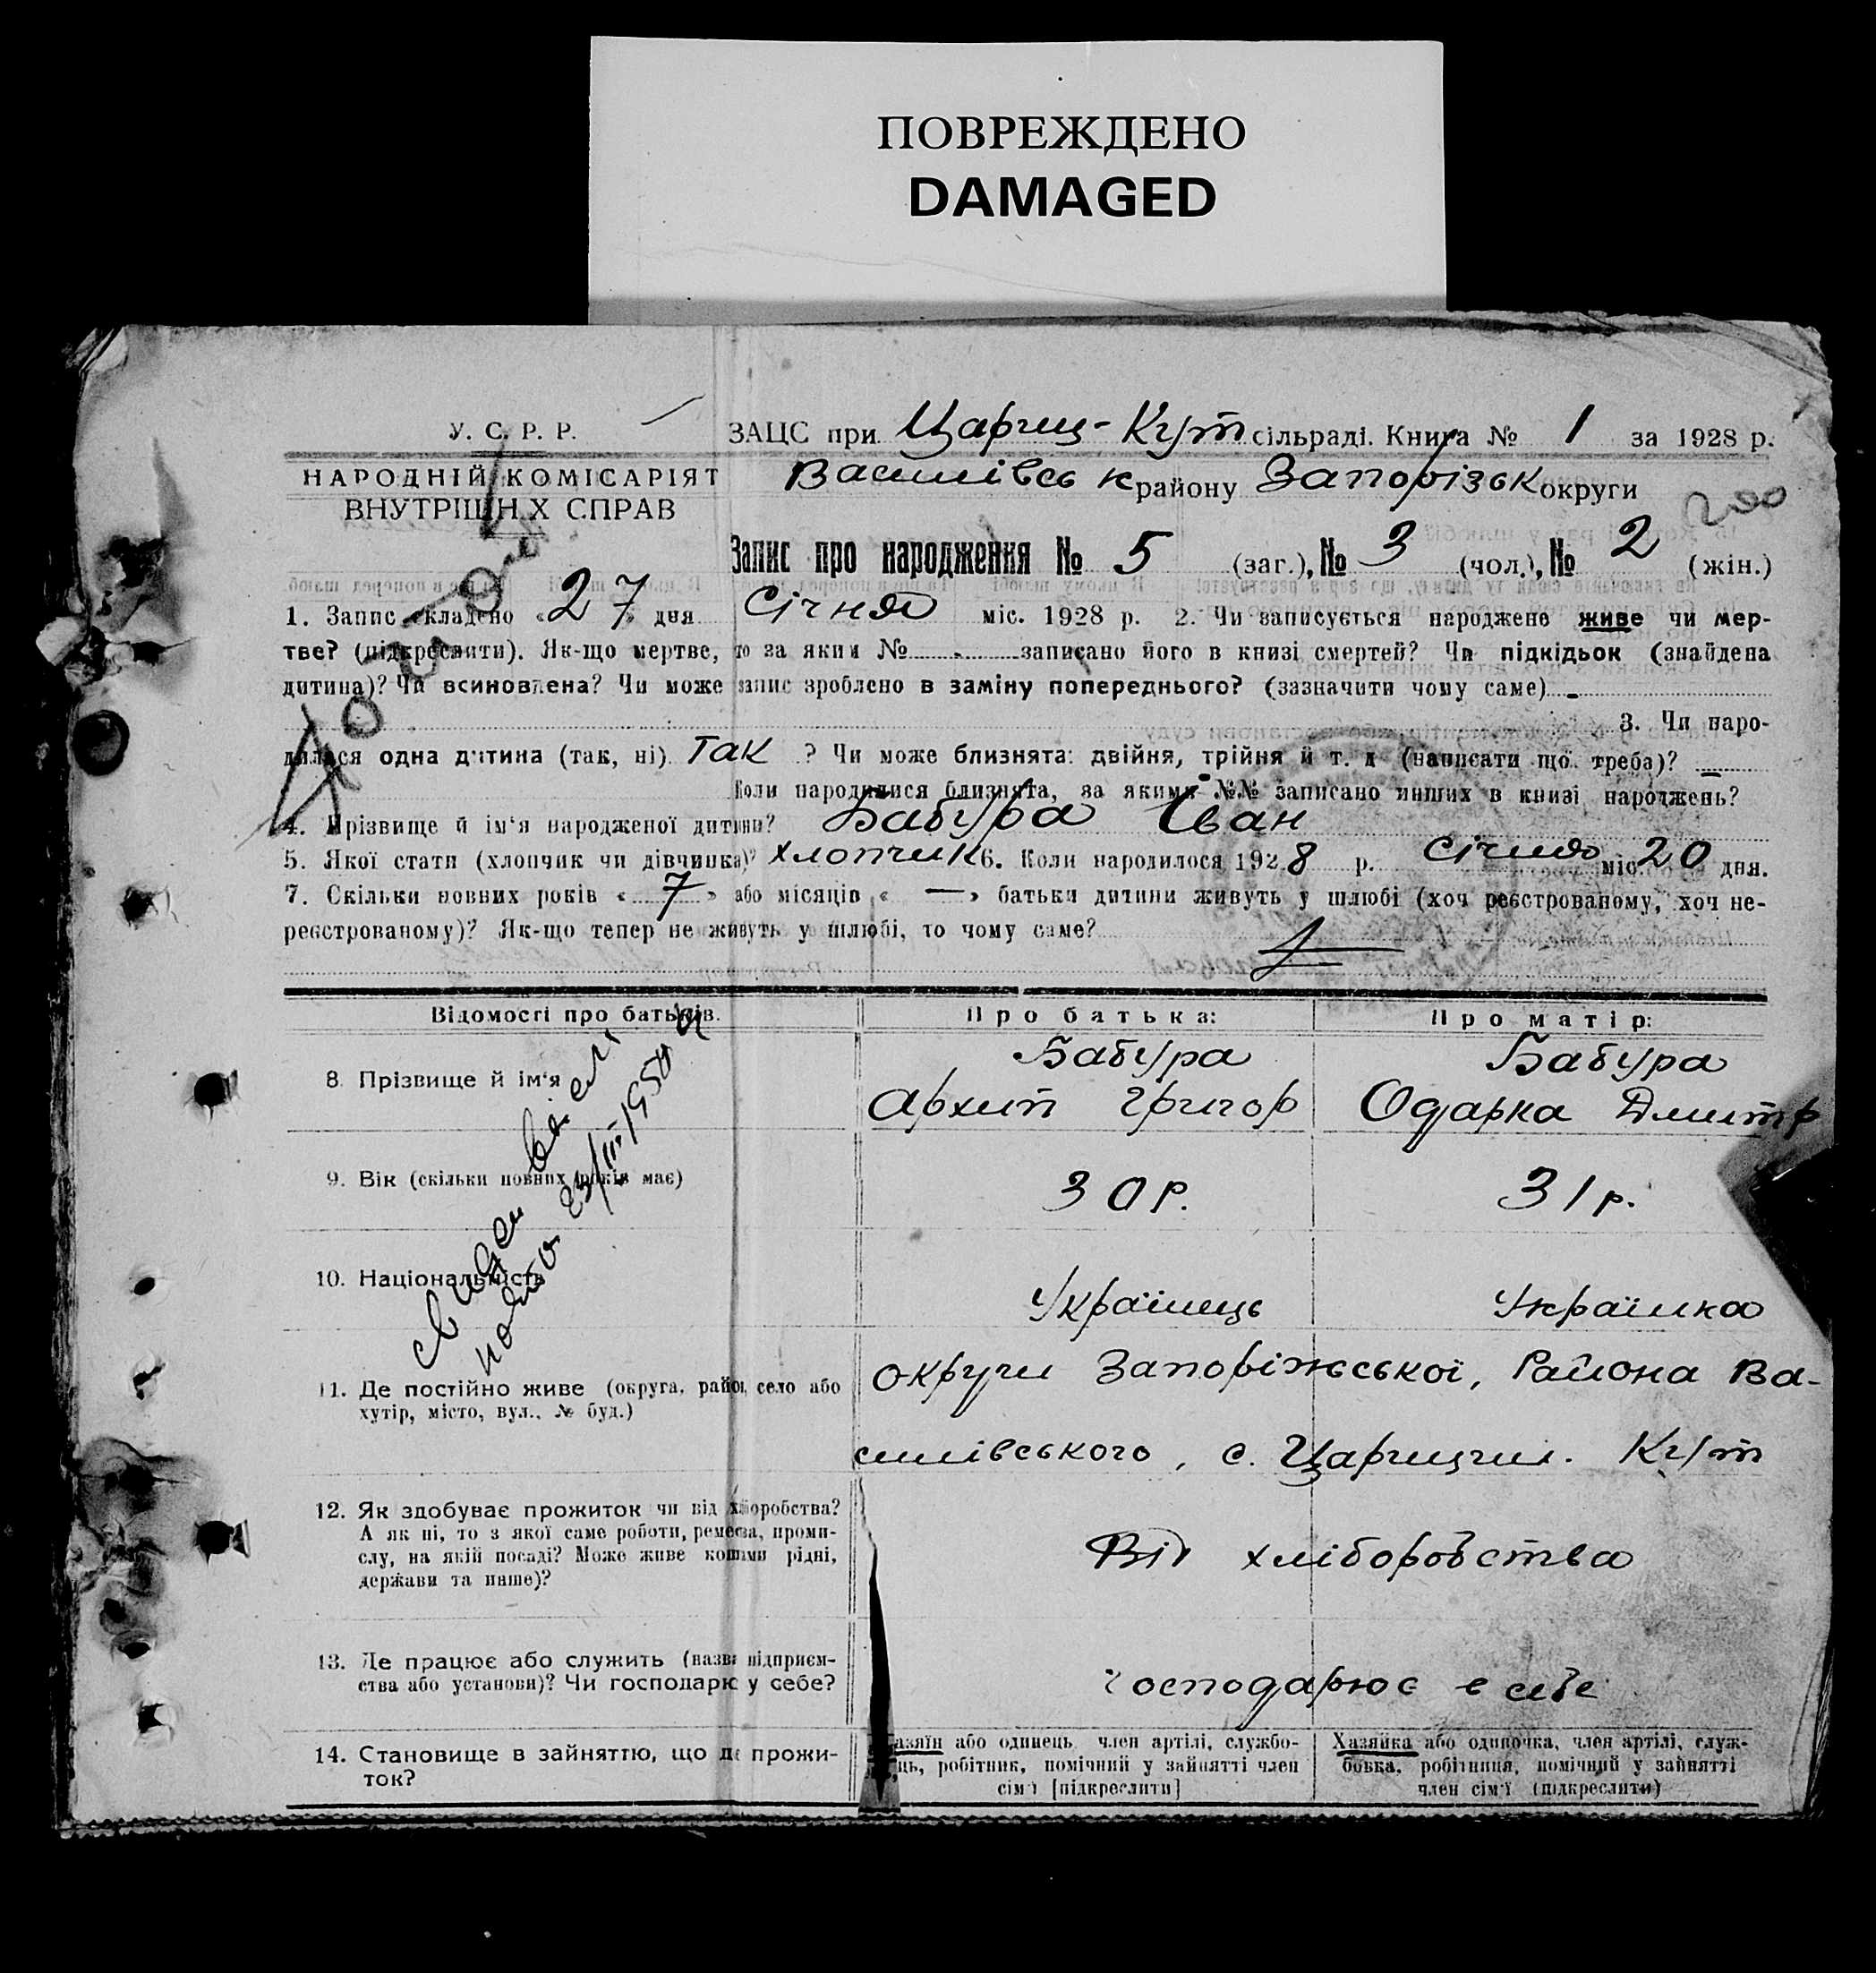 ПОВРЕЖДЕНО
DAMAGED
У. С. Р. Р.
НАРОДНІЙ КОМІСАРІЯТ
ВНУТРІШН Х СПРАВ
ЗАЦС при Цариц-Кут сільраді. Книга № 1 за 1928 р.
Василівськ району Запорізьк округи
200
Запис про народження № 5 (заг.), № 3 (чол.), № 2 (жін.)
1. Запис складено «27» дня Січня міс. 1928 р. 2. Чи записується народжене живе чи мер-
тве? (підкреслити). Як-що мертве, то за яким № - записано його в книзі смертей? Чи підкідьок (знайдена
дитина)? Чи всиновлена? Чи може запис зроблено в заміну попереднього? (зазначити чому саме) -
3. Чи наро-
дилася одна дитина (так, ні) Так ? Чи може близнята: двійня, трійня й т. д (написати що треба)? —
Коли народилися близнята, за якими №№ записано инших в книзі народжень?
4. Прізвище й ім'я народженої дитини? Бабура Іван
5. Якої стати (хлопчик чи дівчинка)? Хлопчик 6. Коли народилося 1928 р. Січня міс. 20 дня.
7. Скільки повних років «7» або місяців «—» батьки дитини живуть у шлюбі (хоч реєстрованому, хоч не-
реєстрованому)? Як-що тепер не живуть у шлюбі, то чому саме?
Відомості про батьків.
Про батька:
Про матір:
8. Прізвище й ім'я
Бабура
Архип Григор
Бабура
Одарка Дмитр
9. Вік (скільки повних років має)
30 р.
31 р.
10. Національність
Українець
Українка
11. Де постійно живе (округа, район, село або
хутір, місто, вул., № буд.)
округи Запоріжської, Района Ва-
силівського, с. Царицин. Кут
12. Як здобуває прожиток чи від хліборобства?
А як ні, то з якої саме роботи, ремесла, проми-
слу, на якій посаді? Може живе коштами рідні,
держави та инше)?
Від хліборобства
13. Де працює або служить (назва підприєм-
ства або установи)? Чи господарює у себе?
Господарює в себе
14. Становище в зайняттю, що дає прожи-
ток?
азяїн або одинець, член артілі, службо-
ць, робітник, помічний у зайнятті член
сім'ї [підкреслити]
Хазяйка або одиночка, член артілі, служ-
бовка, робітниця, помічний у зайнятті
член сім'ї (підкреслити)
23/III 1950